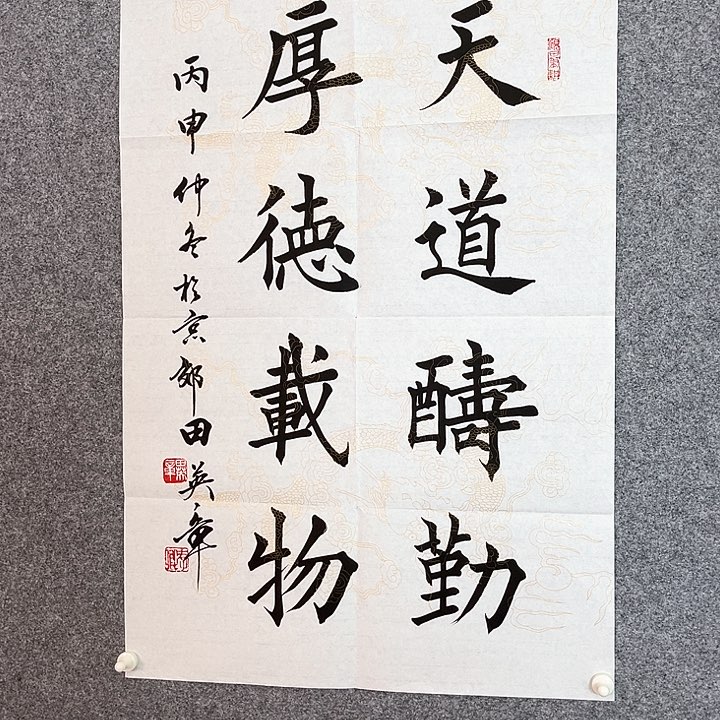 天道酬勤
厚德載物
丙申仲冬於京郊田英章